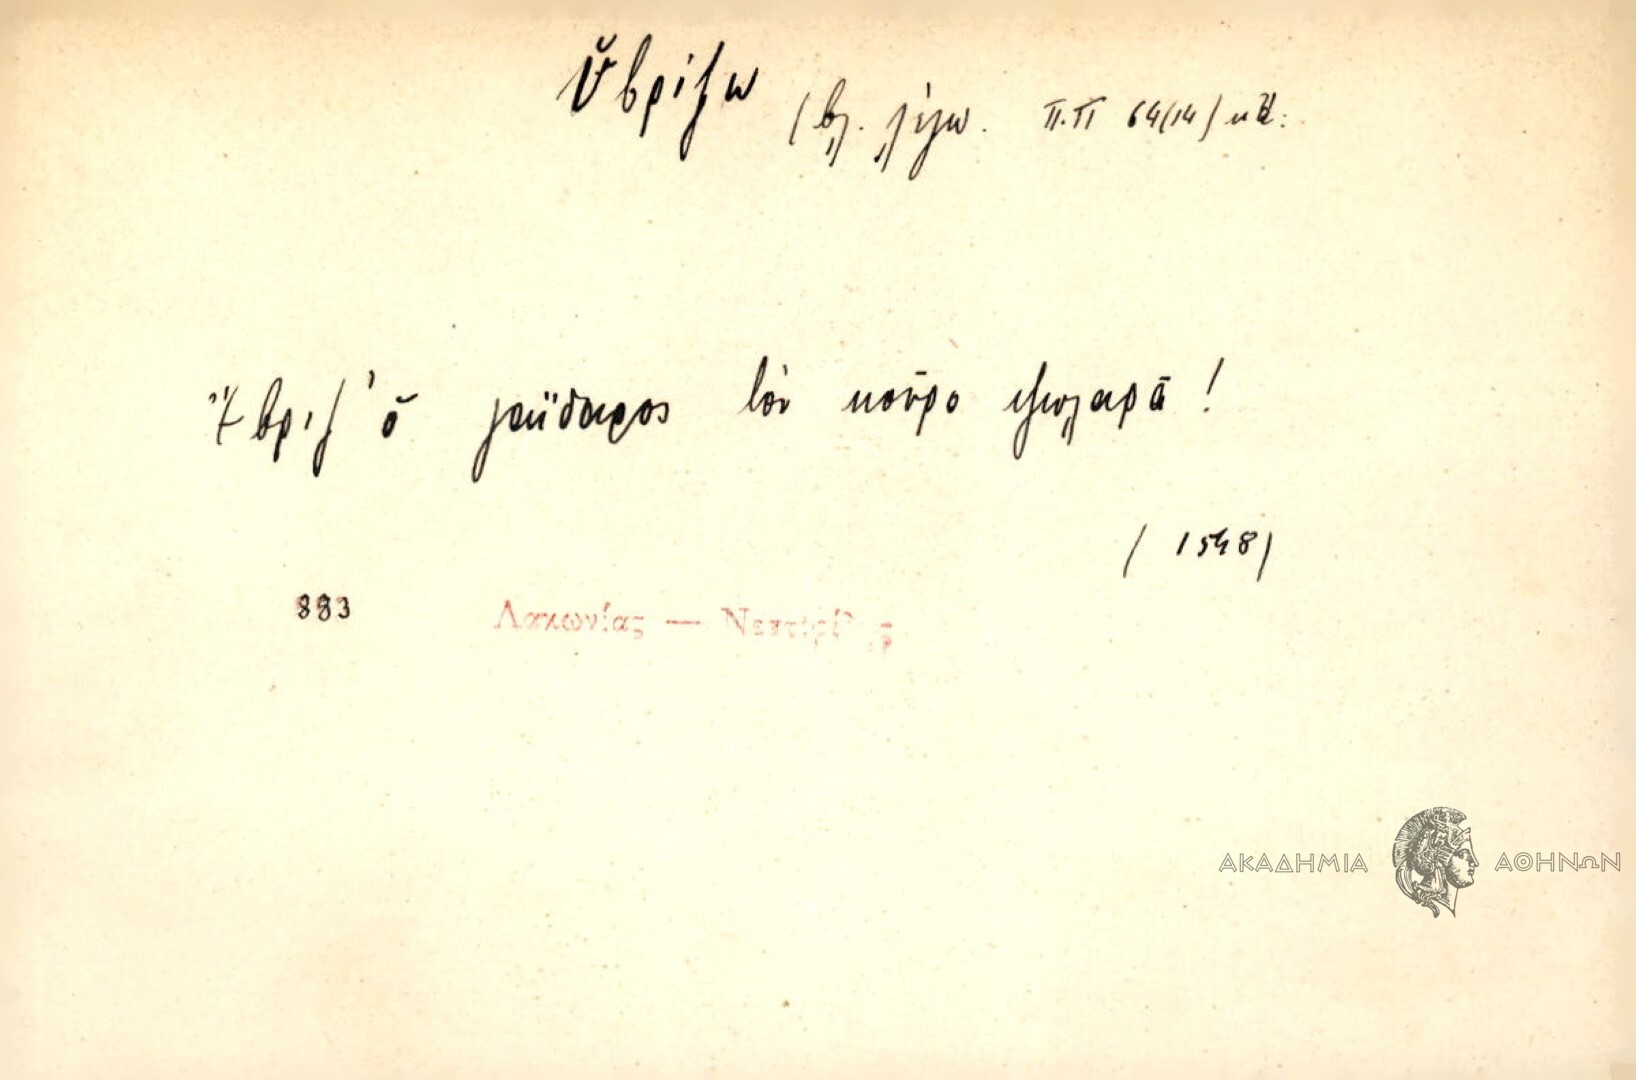 Ὑβρίζω (βλ. λέγω. Π.Π 64(14) κἑ:
Ἔβριζ' ὁ γαΐδαρος τὸν κοῦρο ψωλαρᾶ!
(1548)
883 Λακωνίας —
ΑΚΑΔΗΜΙΑ ΑΘΗΝΩΝ